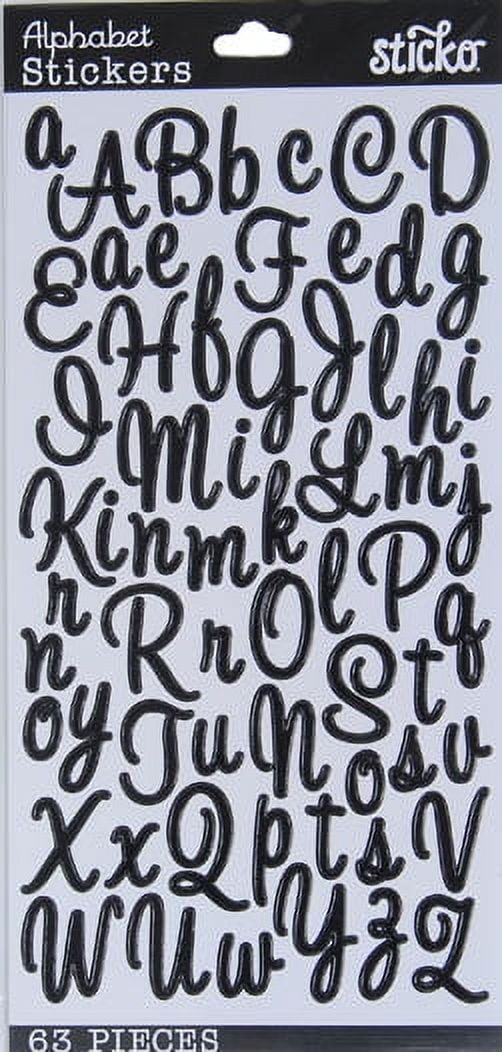 Alphabet
Stickers
sticko
a A B b c C D
E a e F e d g
H f G J l h i
I M i L m j
K i n m k l P
r R r O q
n S t
o y T u N o s v
X x Q p t s V
W U w Y z Z
63 PIECES